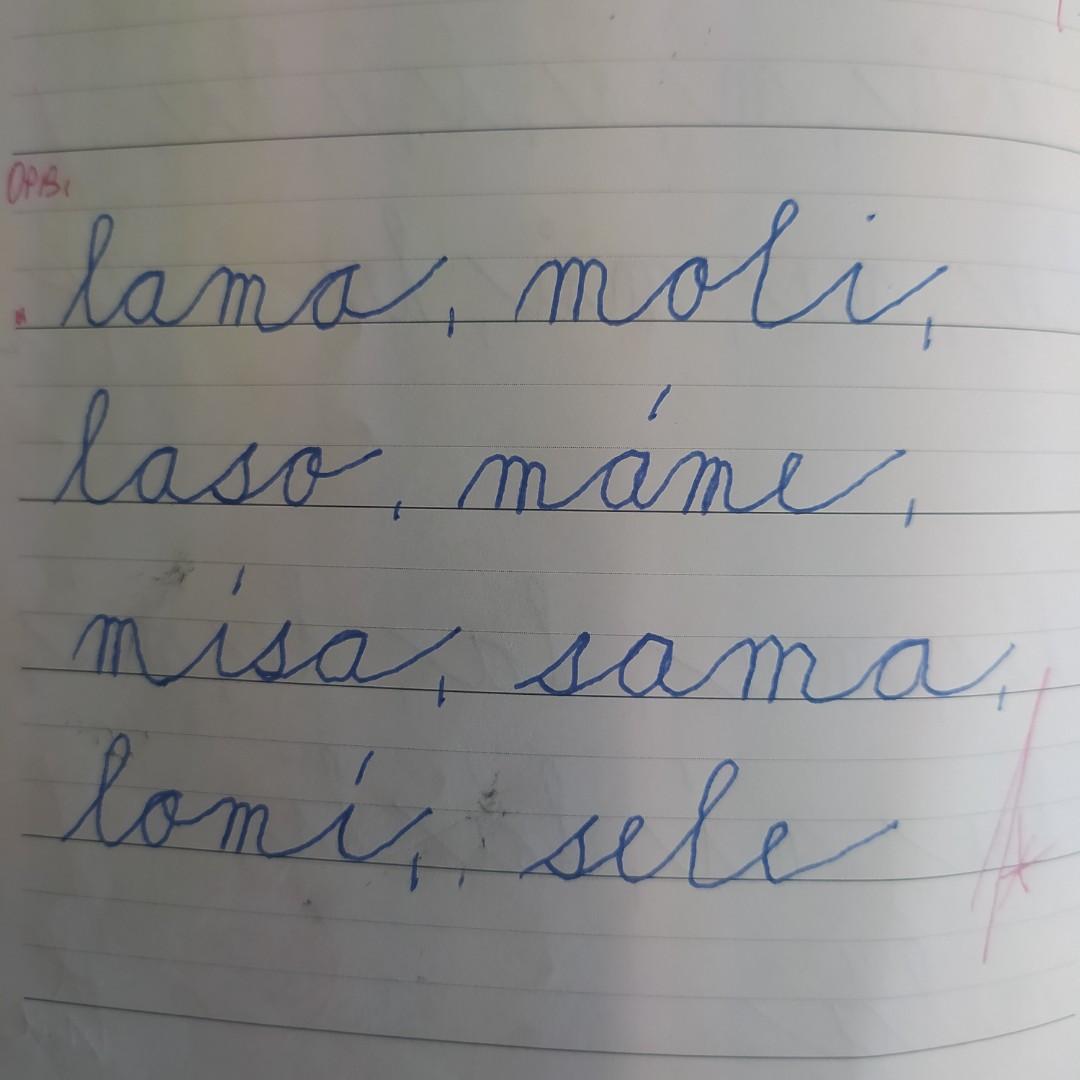 OPR:
lama, moli,
laso, máme,
mísa, sama,
lomí, sele